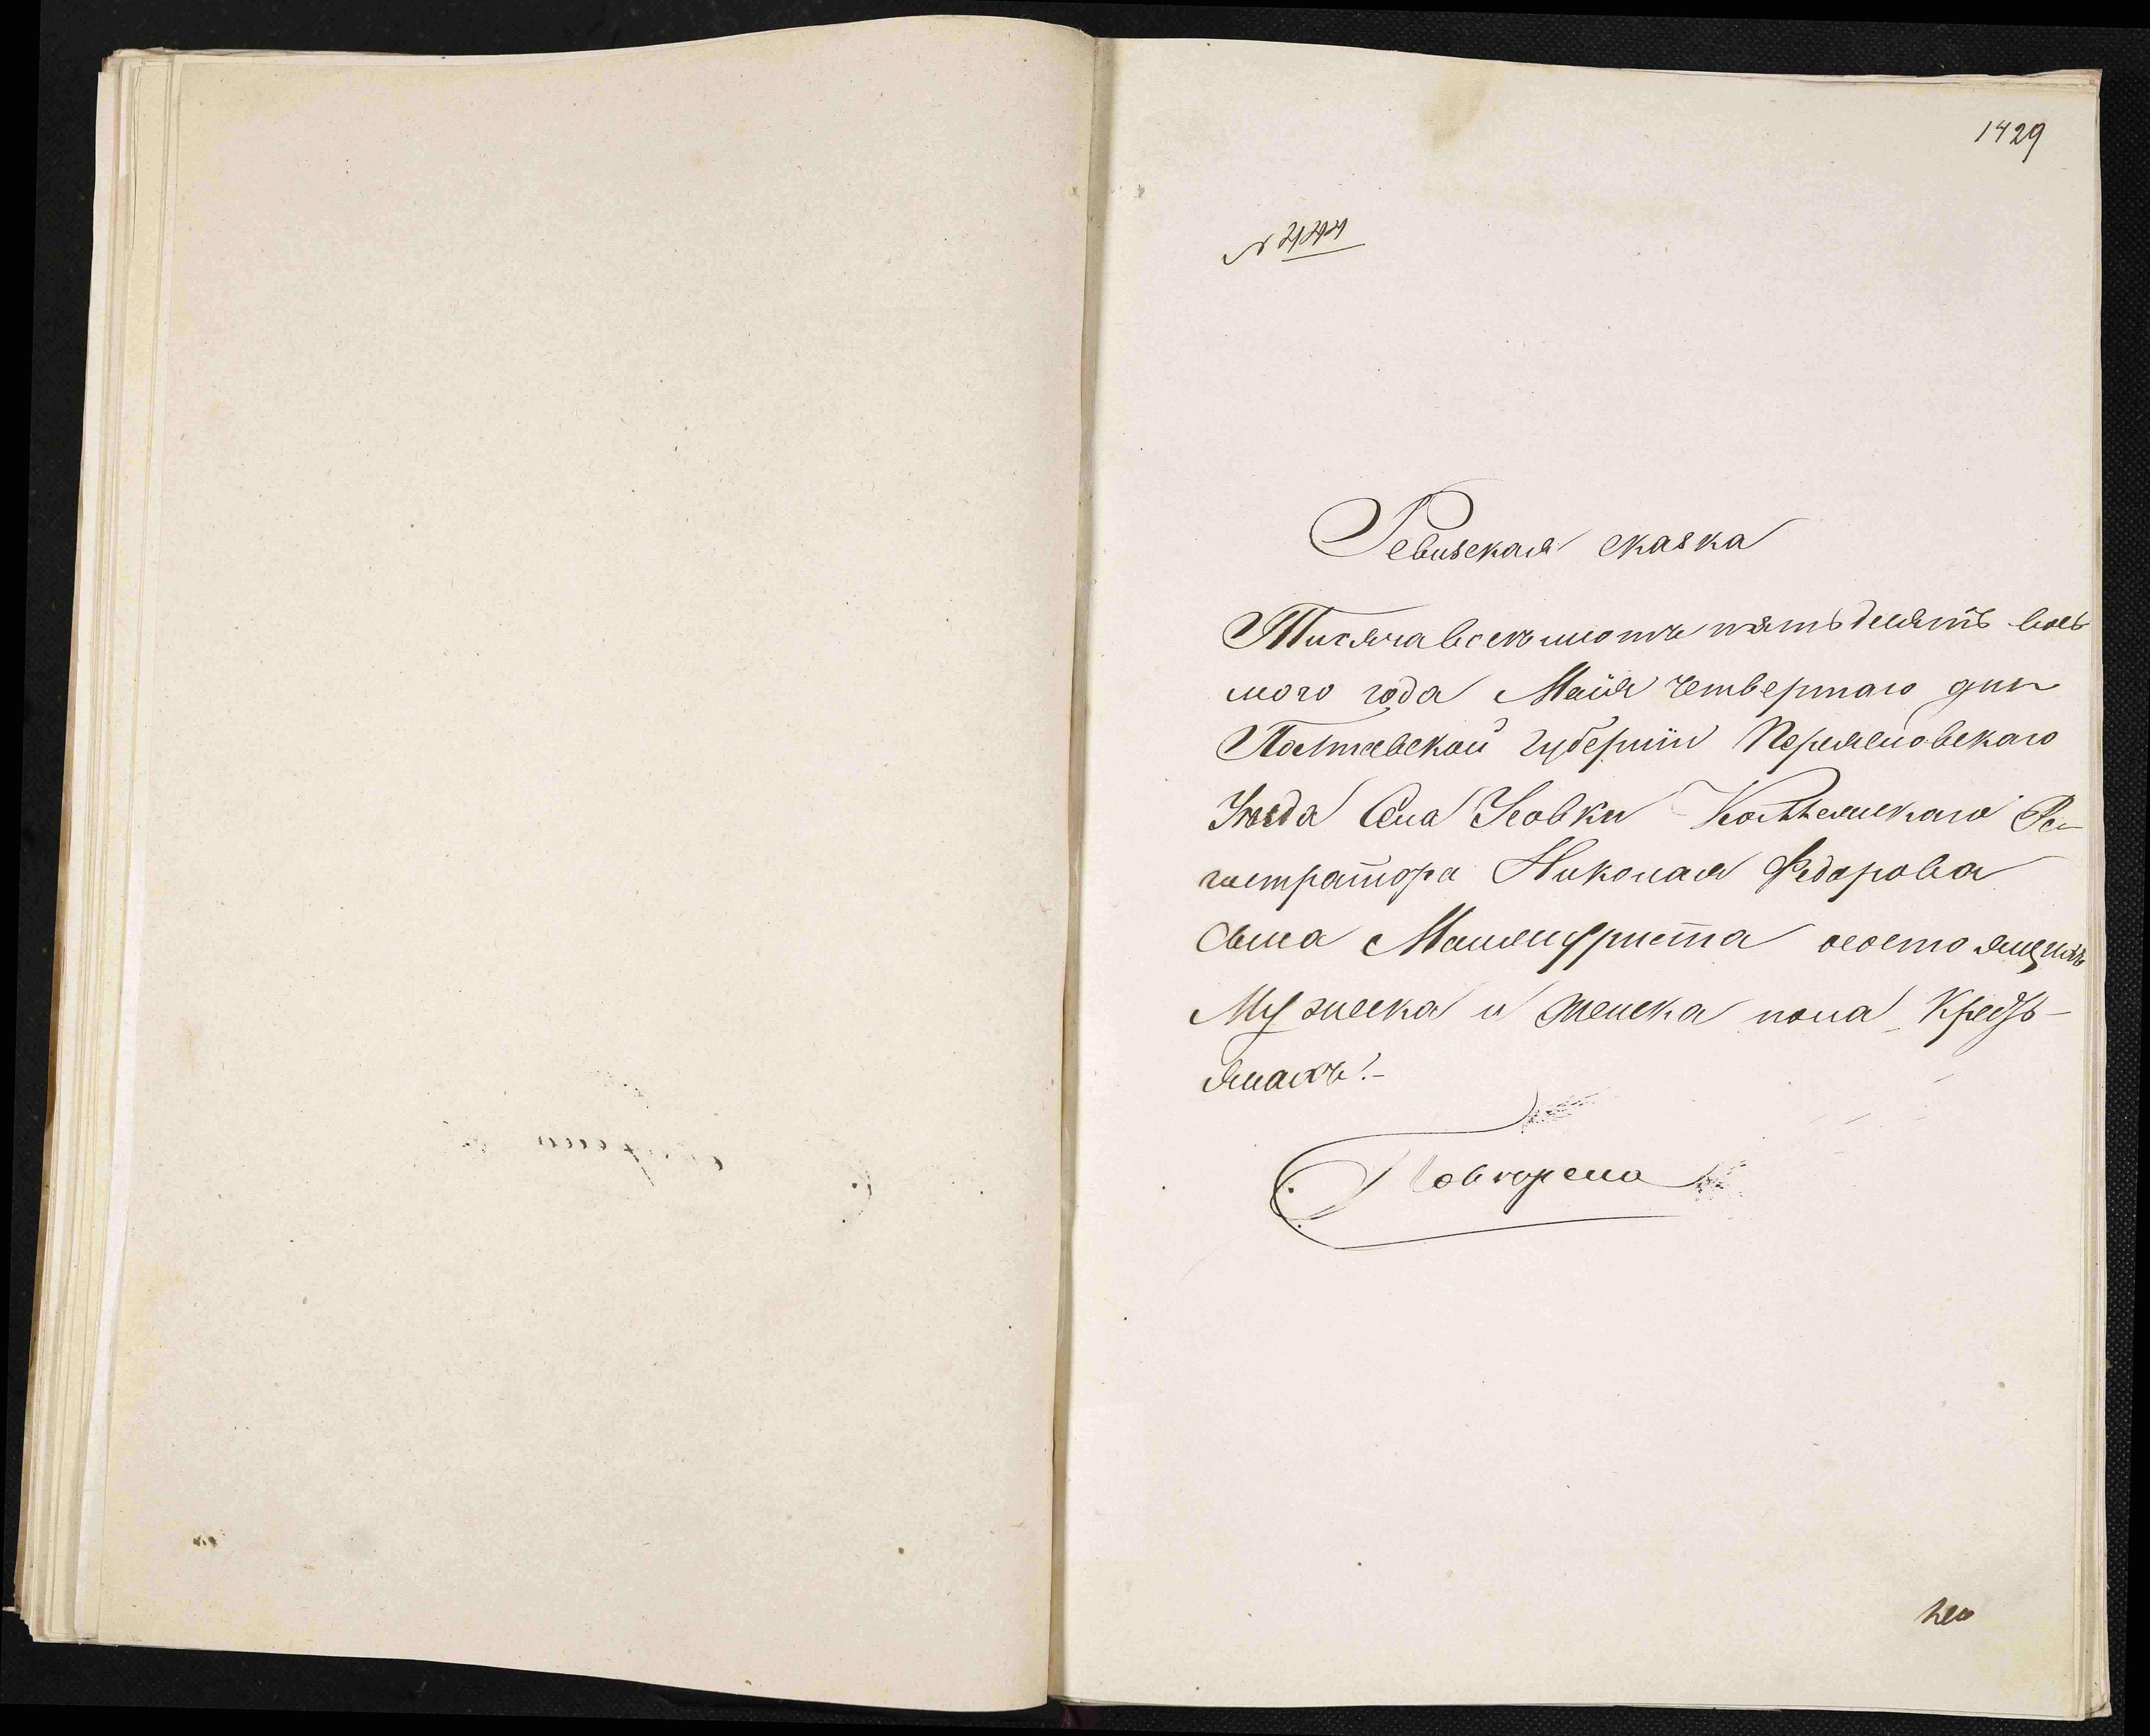 1429
N 244
Ревизская сказка
Тисяча восемъ сотъ пятьдесятъ вось
мого года Маія четвертаго дня
Полтавской губерніи Переяславскаго
Уѣзда Села Усовки Коллежскаго Ре
гистратора Николая Федорова
Сына состоящихъ
Мужеска и женска пола Кресть-
янахъ.-
Повторена